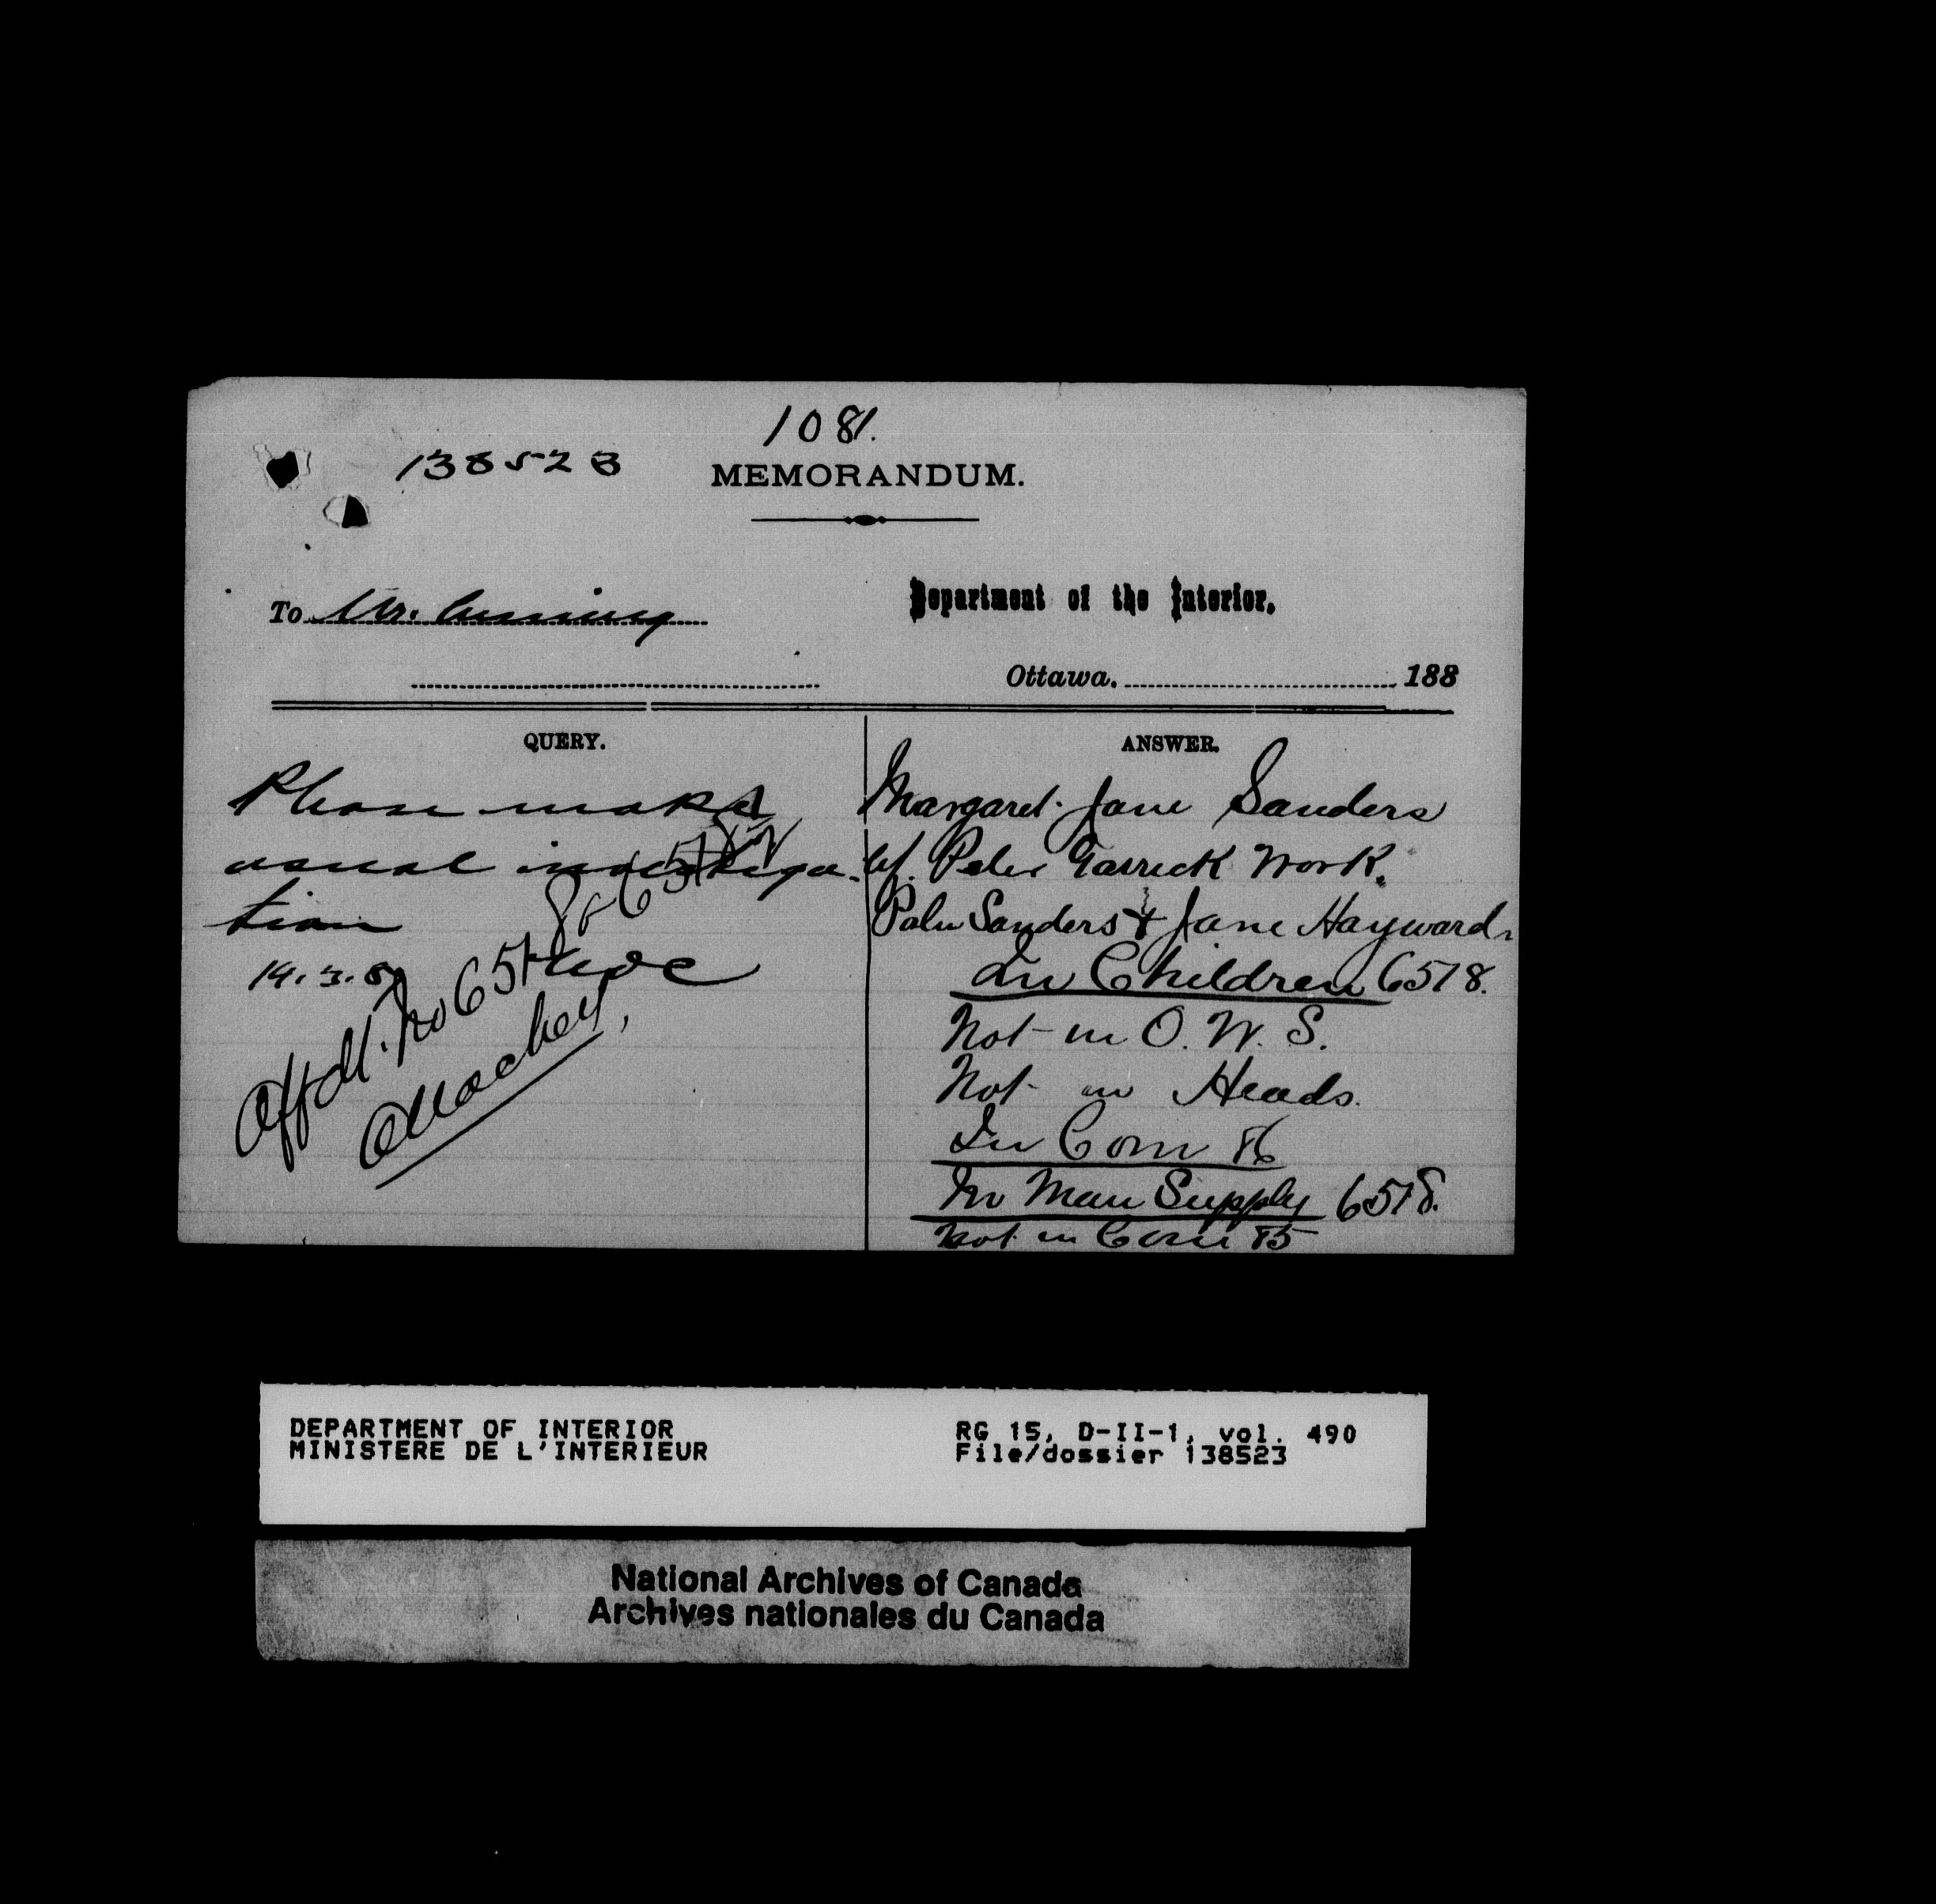 1081.
138523
MEMORANDUM.
To Mr.
Department of the Interior.
Ottawa. 188
QUERY.
Please make
usual investiga-
tion
14.3.8
Affdt. No 6518
attached,
ANSWER.
Margaret Jane Sanders
of Peter Garrick Work.
Palm Sanders & Jane Hayward
In Children 6518.
Not in O. W. S.
Not in Heads.
In Com 86
In Man Supply 6518.
Not in Com 85
DEPARTMENT OF INTERIOR
MINISTERE DE L'INTERIEUR
RG 15, D-II-1, vol. 490
File/dossier 138523
National Archives of Canada
Archives nationales du Canada